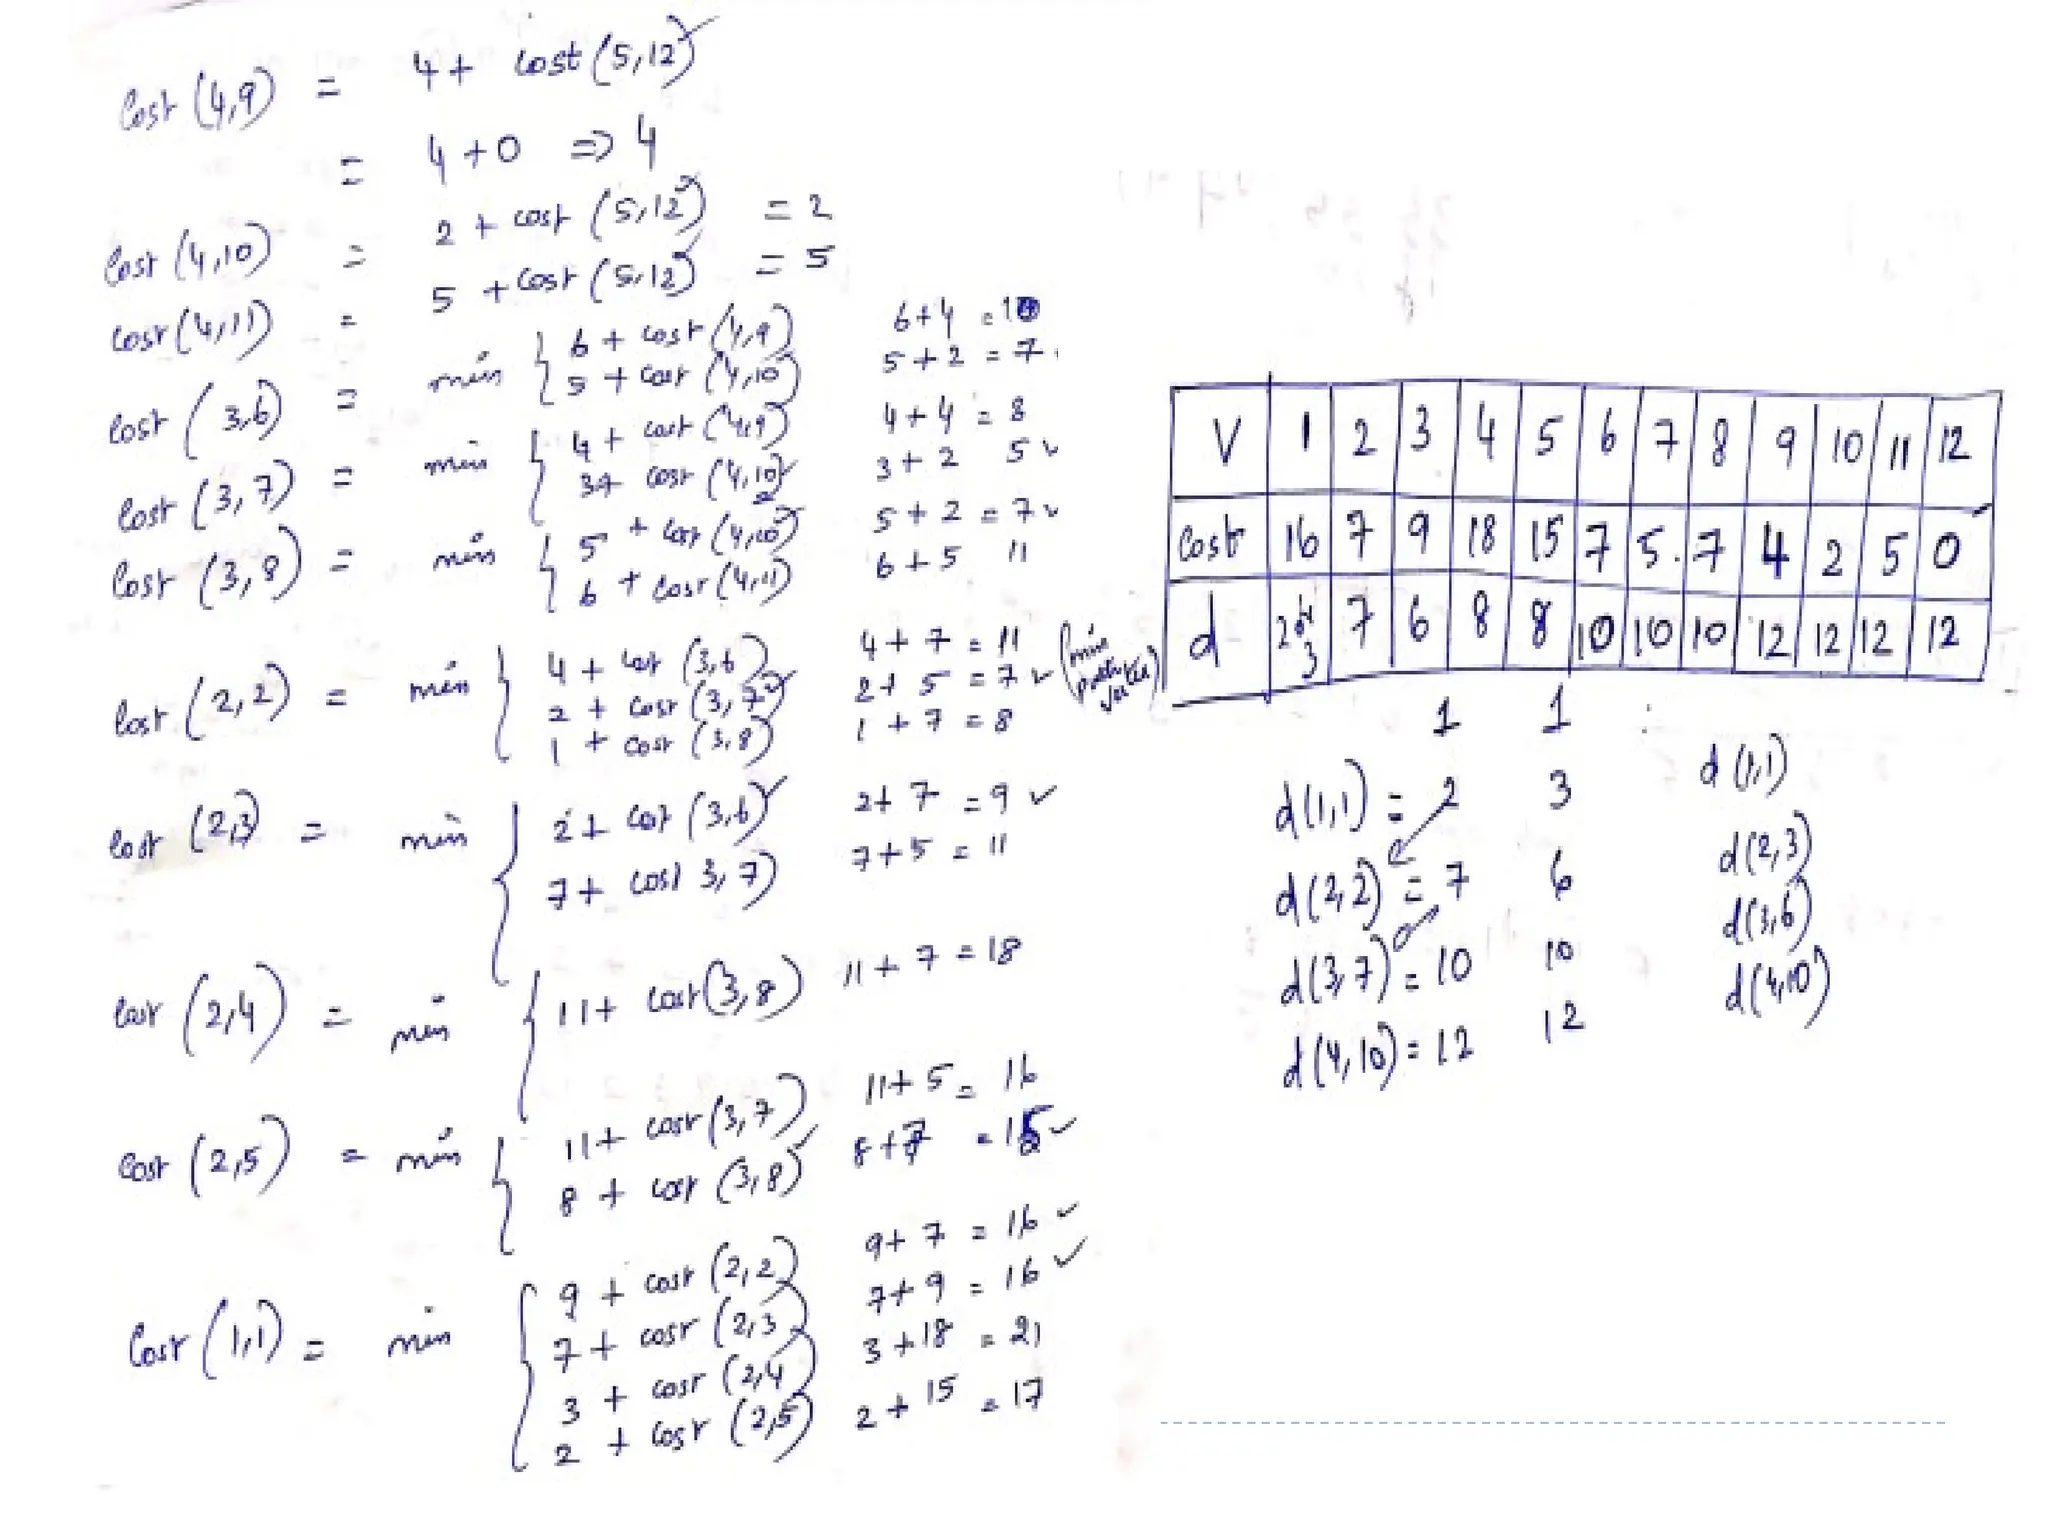 cost (4,9) = 4 + cost (5,12)
= 4 + 0 => 4
cost (4,10) = 2 + cost (5,12) = 2
cost (4,11) = 5 + cost (5,12) = 5
cost (3,6) = min { 6 + cost (4,9) 6+4 = 10
5 + cost (4,10) 5+2 = 7
cost (3,7) = min { 4 + cost (4,9) 4+4 = 8
3+ cost (4,10) 3+2 5 ✓
cost (3,8) = min { 5 + cost (4,10) 5+2 = 7 ✓
6 + cost (4,11) 6+5 11
cost (2,2) = min { 4 + cost (3,6) 4+7 = 11
2 + cost (3,7) 2+5 = 7 ✓ (min
1 + cost (3,8) 1+7 = 8
cost (2,3) = min { 2+ cost (3,6) 2+7 = 9 ✓
7+ cost 3,7) 7+5 = 11
cost (2,4) = min { 11+ cost (3,8) 11+7 = 18
cost (2,5) = min { 11+ cost (3,7) 11+5 = 16
8 + cost (3,8) 8+7 = 15 ✓
cost (1,1) = min { 9 + cost (2,2) 9+7 = 16 ✓
7 + cost (2,3) 7+9 = 16 ✓
3 + cost (2,4) 3+18 = 21
2 + cost (2,5) 2+15 = 17
V 1 2 3 4 5 6 7 8 9 10 11 12
cost 16 7 9 18 15 7 5. 7 4 2 5 0
d 2 or 3 7 6 8 8 10 10 10 12 12 12 12
1 1
d(1,1) = 2 3 d(1,1)
d(2,2) = 7 6 d(2,3)
d(3,7) = 10 10 d(3,6)
d(4,10) = 12 12 d(4,10)